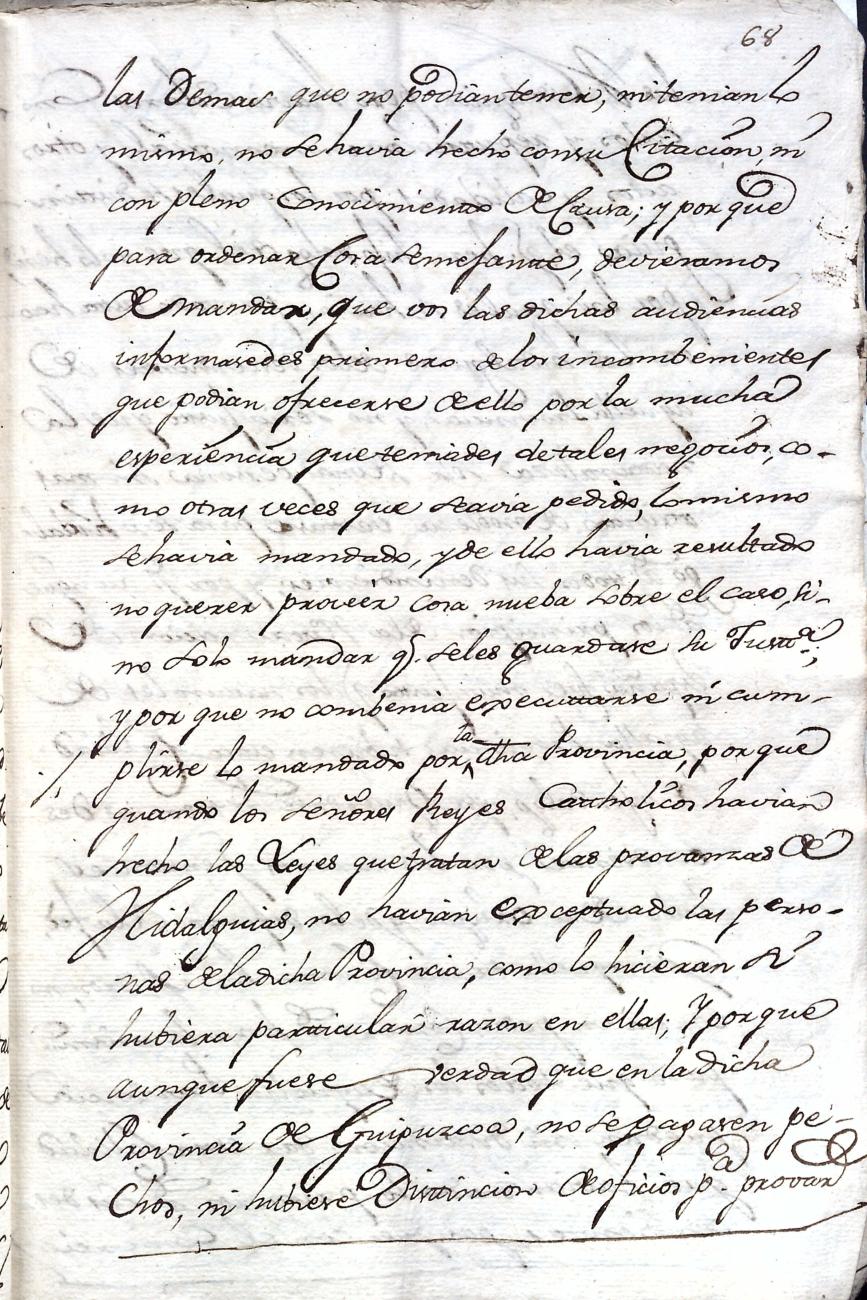 68
las Demas que no podian tener, ni tenian lo
mismo, no se havia hecho con su Citacion, ni
con pleno Conocimiento de Causa; y por que
para ordenar Cosa semejante, devieramos
de mandar, que vos las dichas audiencias
informasedes primero de los incombenientes
que podian ofrecerse de ello por la mucha
esperiencia que teniades de tales negocios, co-
mo otras veces que se avia pedido, lo mismo
se havia mandado, y de ello havia resultado
no querer proveer cosa nueba sobre el caso, si-
no solo mandar q.e se les guardase su Justa.;
y por que no combenia executtarse ni cum-
plirse lo mandado por la dha Provincia, por que
quando los señores Reyes Catholicos havian
hecho las Leyes que tratan de las provanzas de
Hidalguias, no havian exceptuado las perso-
nas de la dicha Provincia, como lo hicieran si
hubiera particular razon en ellas; Y por que
aunque fuese verdad que en la dicha
Provincia de Guipuzcoa, no se pagasen pe-
chos, ni hubiese Distincion de oficios p.a provar